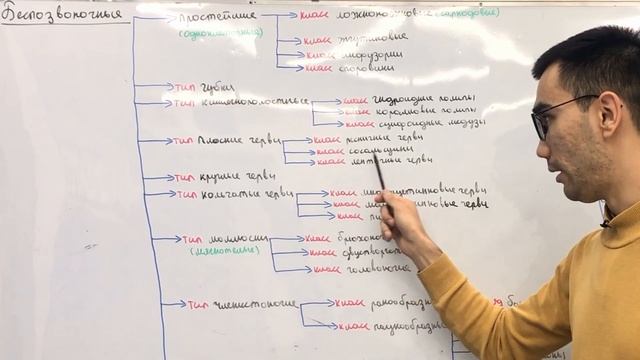 Беспозвоночные
Простейшие
(одноклеточные)
класс ложноножковые (саркодовые)
класс жгутиковые
класс инфузории
класс споровики
тип губки
тип кишечнополостные
класс гидроидные полипы
класс коралловые полипы
класс сцифоидные медузы
тип плоские черви
класс ресничные черви
класс сосальщики
класс ленточные черви
тип круглые черви
тип кольчатые черви
класс многощетинковые черви
класс ма щетинковые черви
класс пи
тип моллюски
(мягкотелые)
класс брюхоно
класс двустворча
класс головоногие
тип членистоногие
класс ракообразн
класс паукообразн